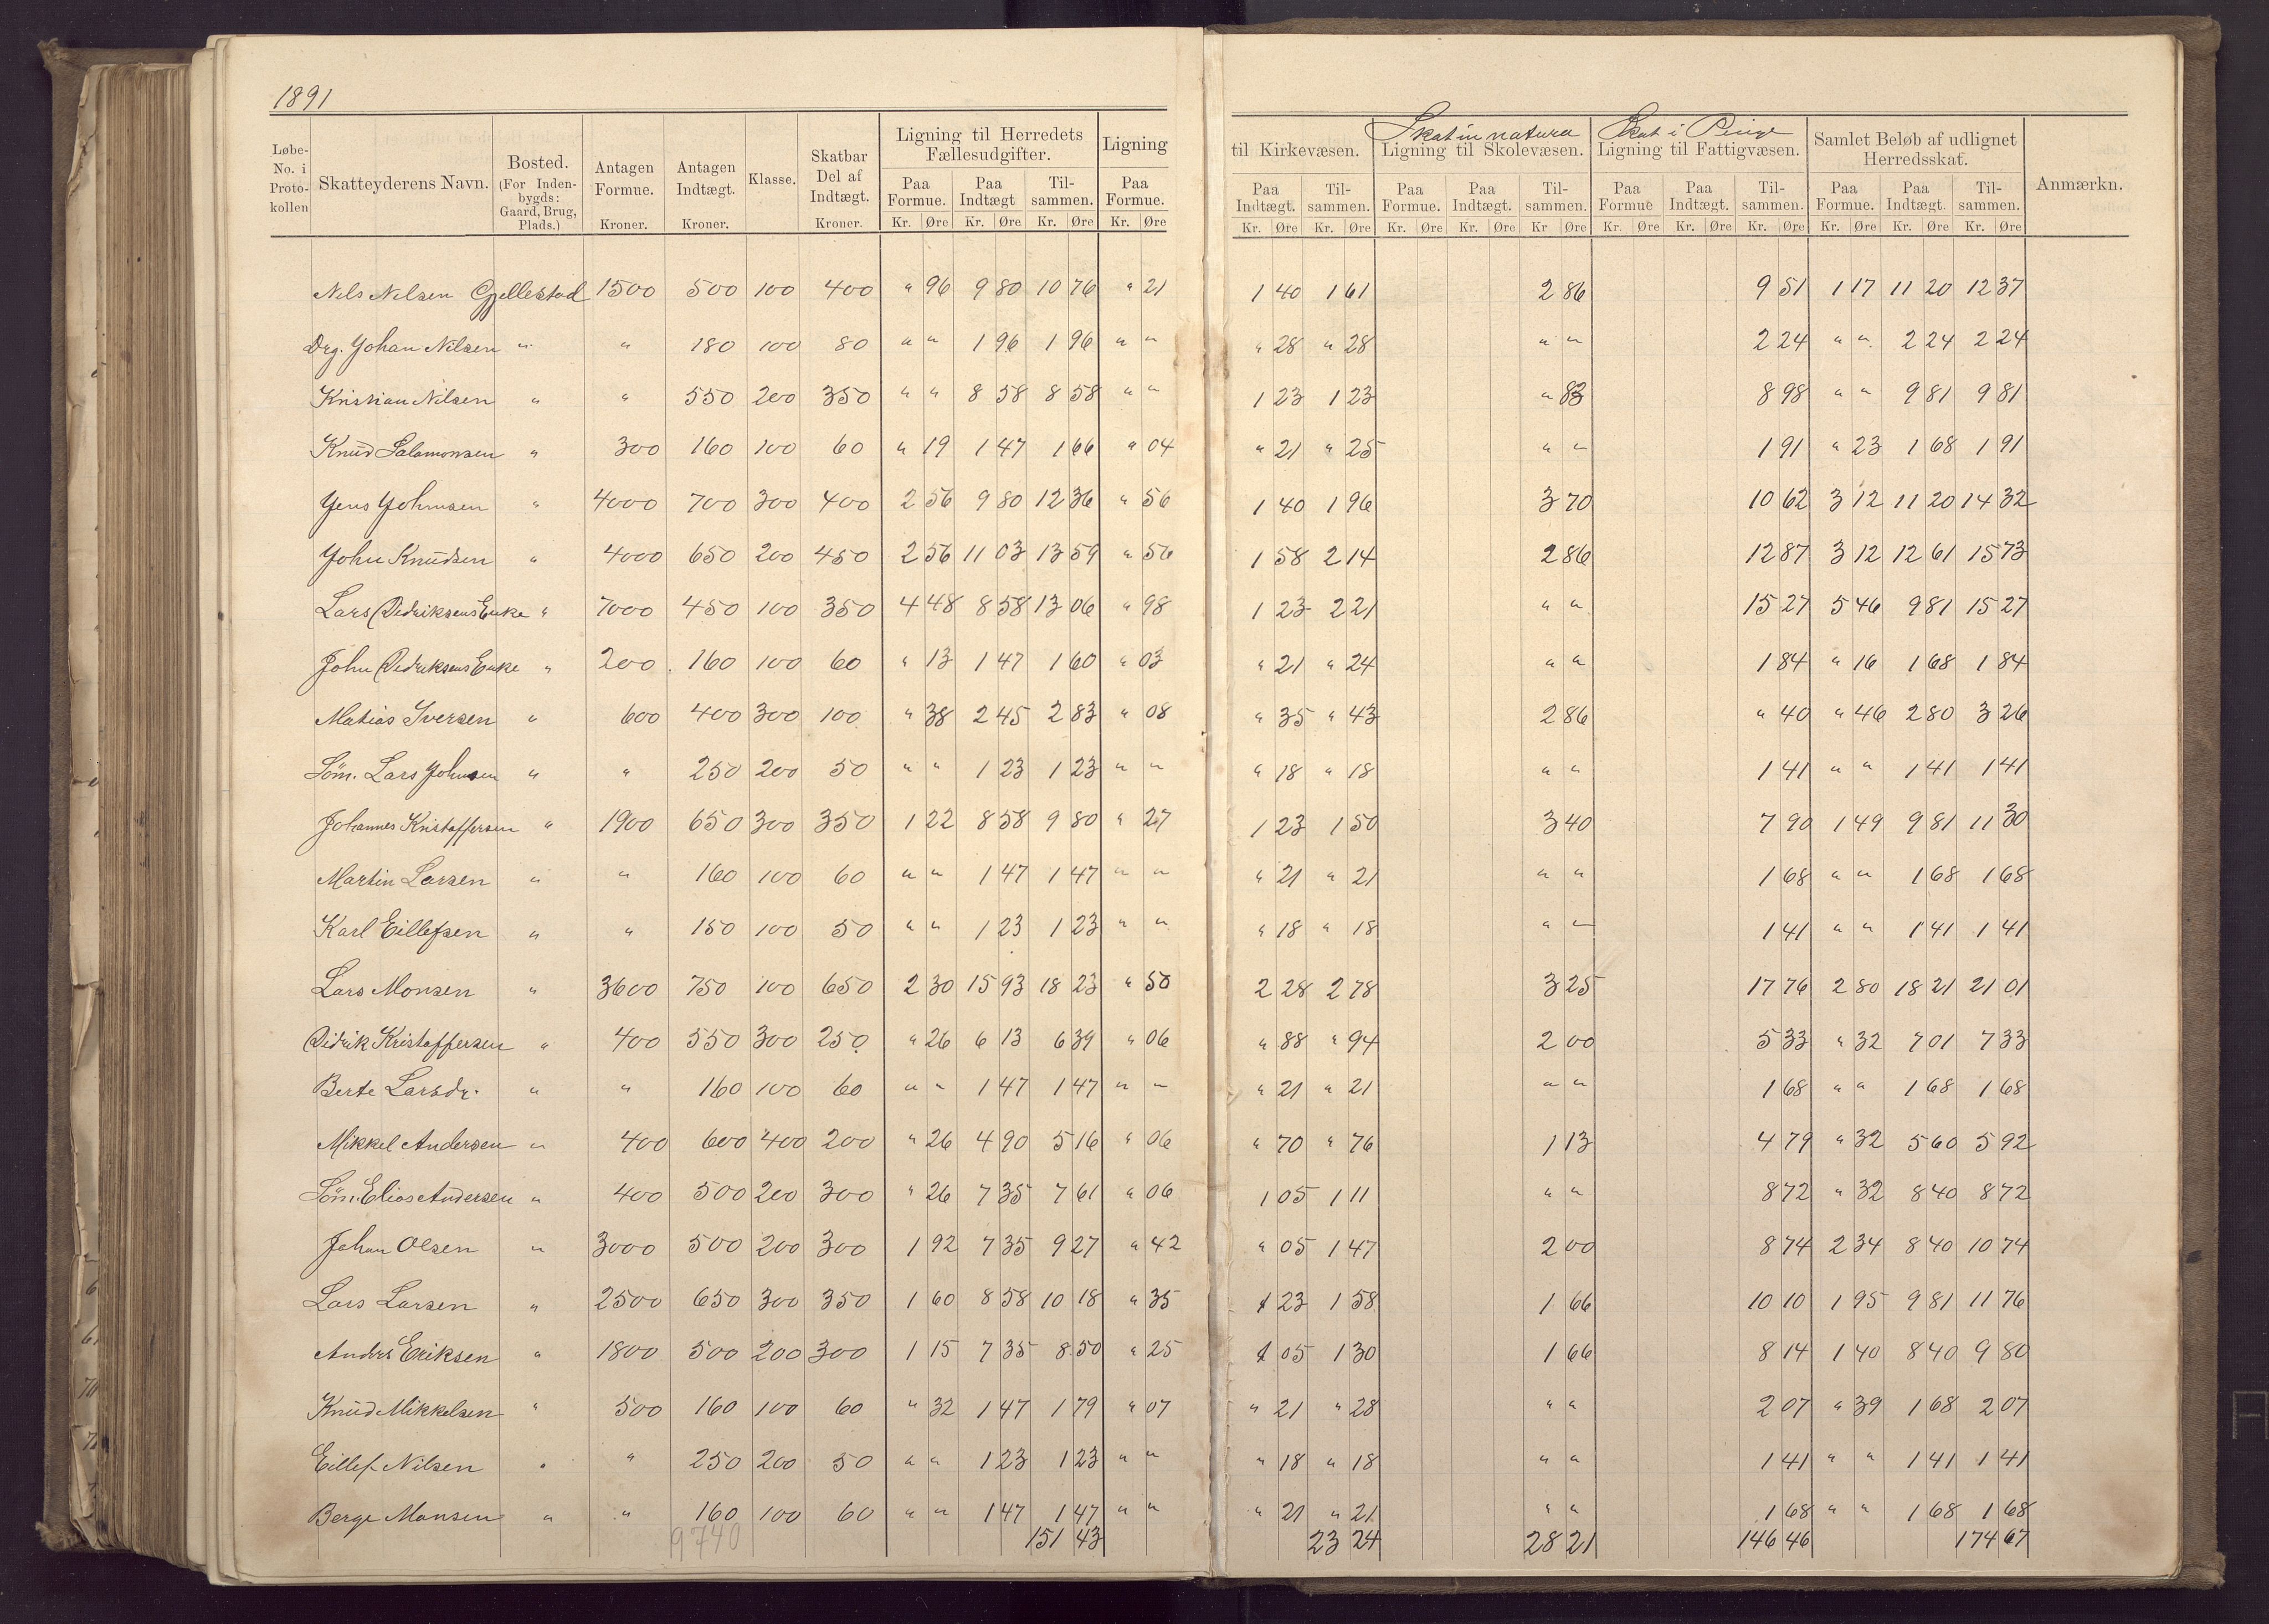 1891
Løbe-No. i Proto-kollen | Skatteyderens Navn. | Bosted. (For Inden-bygds: Gaard, Brug, Plads.) | Antagen Formue. Kroner. | Antagen Indtægt. Kroner. | Klasse. | Skatbar Del af Indtægt. Kroner. | Ligning til Herredets Fællesudgifter. Paa Formue. Kr. Øre | Paa Indtægt Kr. Øre | Til-sammen. Kr. Øre | Ligning Paa Formue. Kr. Øre | til Kirkevæsen. Paa Indtægt. Kr. Øre | Til-sammen. Kr. Øre | Skat in natura Ligning til Skolevæsen. Paa Formue. Kr. Øre | Paa Indtægt. Kr. Øre | Til-sammen. Kr Øre | Skat i Penge Ligning til Fattigvæsen. Paa Formue Kr. Øre | Paa Indtægt. Kr. Øre | Til-sammen. Kr. Øre | Samlet Beløb af udlignet Herredsskat. Paa Formue. Kr. Øre | Paa Indtægt. Kr. Øre | Til-sammen. Kr. Øre | Anmærkn.
Nils Nilsen Gjellestad 1500 500 100 400 " 96 9 80 10 76 " 21 1 40 1 61 2 86 9 51 1 17 11 20 12 37
Drg. Johan Nilsen " " 180 100 80 " " 1 96 1 96 " " " 28 " 28 " " 2 24 " " 2 24 2 24
Kristian Nilsen " " 550 200 350 " " 8 58 8 58 " " 1 23 1 23 " 83 8 98 " " 9 81 9 81
Knud Salamonsen " 300 160 100 60 " 19 1 47 1 66 " 04 " 21 " 25 " " 1 91 " 23 1 68 1 91
Jens Johnsen " 4000 700 300 400 2 56 9 80 12 36 " 56 1 40 1 96 3 70 10 62 3 12 11 20 14 32
John Knudsen " 4000 650 200 450 2 56 11 03 13 59 " 56 1 58 2 14 2 86 12 87 3 12 12 61 15 73
Lars Didriksens Enke " 7000 450 100 350 4 48 8 58 13 06 " 98 1 23 2 21 " " 15 27 5 46 9 81 15 27
John Didriksens Enke " 200 160 100 60 " 13 1 47 1 60 " 03 " 21 " 24 " " 1 84 " 16 1 68 1 84
Matias Iversen " 600 400 300 100 " 38 2 45 2 83 " 08 " 35 " 43 2 86 " 40 " 46 2 80 3 26
Söm. Lars Johnsen " " 250 200 50 " " 1 23 1 23 " " " 18 " 18 " " 1 41 " " 1 41 1 41
Johannes Kristoffersen " 1900 650 300 350 1 22 8 58 9 80 " 27 1 23 1 50 3 40 7 90 1 49 9 81 11 30
Martin Larsen " " 160 100 60 " " 1 47 1 47 " " " 21 " 21 " " 1 68 " " 1 68 1 68
Karl Eillefsen " " 150 100 50 " " 1 23 1 23 " " " 18 " 18 " " 1 41 " " 1 41 1 41
Lars Monsen " 3600 750 100 650 2 30 15 93 18 23 " 50 2 28 2 78 3 25 17 76 2 80 18 21 21 01
Didrik Kristoffersen " 400 550 300 250 " 26 6 13 6 39 " 06 " 88 " 94 2 00 5 33 " 32 7 01 7 33
Berte Larsdr. " " 160 100 60 " " 1 47 1 47 " " " 21 " 21 " " 1 68 " " 1 68 1 68
Mikkel Andersen " 400 600 400 200 " 26 4 90 5 16 " 06 " 70 " 76 1 13 4 79 " 32 5 60 5 92
Söm. Elias Andersen " 400 500 200 300 " 26 7 35 7 61 " 06 1 05 1 11 " " 8 72 " 32 8 40 8 72
Johan Olsen " 3000 500 200 300 1 92 7 35 9 27 " 42 " 05 1 47 2 00 8 74 2 34 8 40 10 74
Lars Larsen " 2500 650 300 350 1 60 8 58 10 18 " 35 1 23 1 58 1 66 10 10 1 95 9 81 11 76
Anders Eriksen " 1800 500 200 300 1 15 7 35 8 50 " 25 1 05 1 30 1 66 8 14 1 40 8 40 9 80
Knud Mikkelsen " 500 160 100 60 " 32 1 47 1 79 " 07 " 21 " 28 " " 2 07 " 39 1 68 2 07
Eillef Nilsen " " 250 200 50 " " 1 23 1 23 " " " 18 " 18 " " 1 41 " " 1 41 1 41
Berge Monsen " " 160 100 60 " " 1 47 1 47 " " " 21 " 21 " " 1 68 " " 1 68 1 68
9740 151 43 23 24 28 21 146 46 174 67